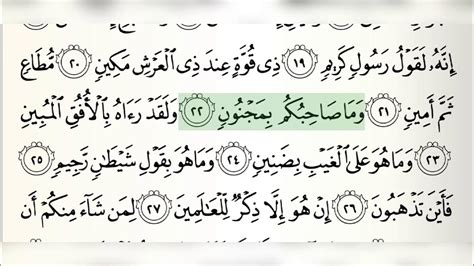 إِنَّهُۥ لَقَوْلُ رَسُولٍ كَرِيمٍ ١٩ ذِى قُوَّةٍ عِندَ ذِى ٱلْعَرْشِ مَكِينٍ ٢٠ مُّطَاعٍ
ثَمَّ أَمِينٍ ٢١ وَمَا صَاحِبُكُم بِمَجْنُونٍ ٢٢ وَلَقَدْ رَءَاهُ بِٱلْأُفُقِ ٱلْمُبِينِ
٢٣ وَمَا هُوَ عَلَى ٱلْغَيْبِ بِضَنِينٍ ٢٤ وَمَا هُوَ بِقَوْلِ شَيْطَٰنٍ رَّجِيمٍ ٢٥
فَأَيْنَ تَذْهَبُونَ ٢٦ إِنْ هُوَ إِلَّا ذِكْرٌ لِّلْعَٰلَمِينَ ٢٧ لِمَن شَآءَ مِنكُمْ أَن